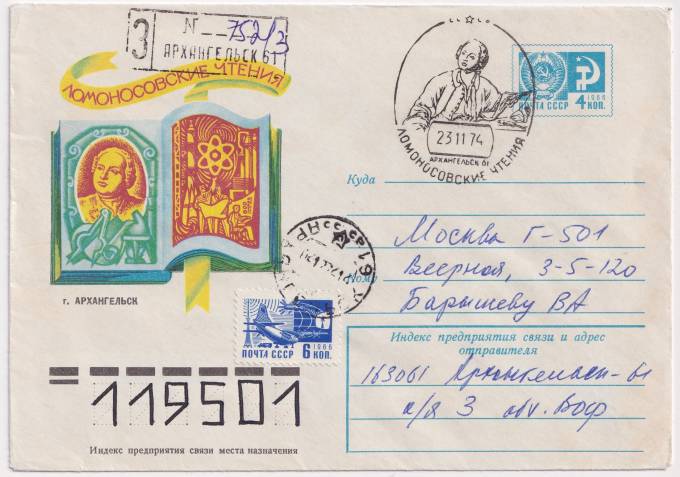 З
N 752/3
АРХАНГЕЛЬСК 61
ЛОМОНОСОВСКИЕ ЧТЕНИЯ
г. АРХАНГЕЛЬСК
СССР
23 11 74
АРХАНГЕЛЬСК 61
ЛОМОНОСОВСКИЕ ЧТЕНИЯ
1966
ПОЧТА СССР 4 КОП.
Куда
Москва Г-501
Веерная, 3-5-120
Кому
Барышеву ВА
СССР
1966
ПОЧТА СССР 6 КОП.
Индекс предприятия связи и адрес
отправителя
163061 Архангельск-61
а/я 3
119501
Индекс предприятия связи места назначения